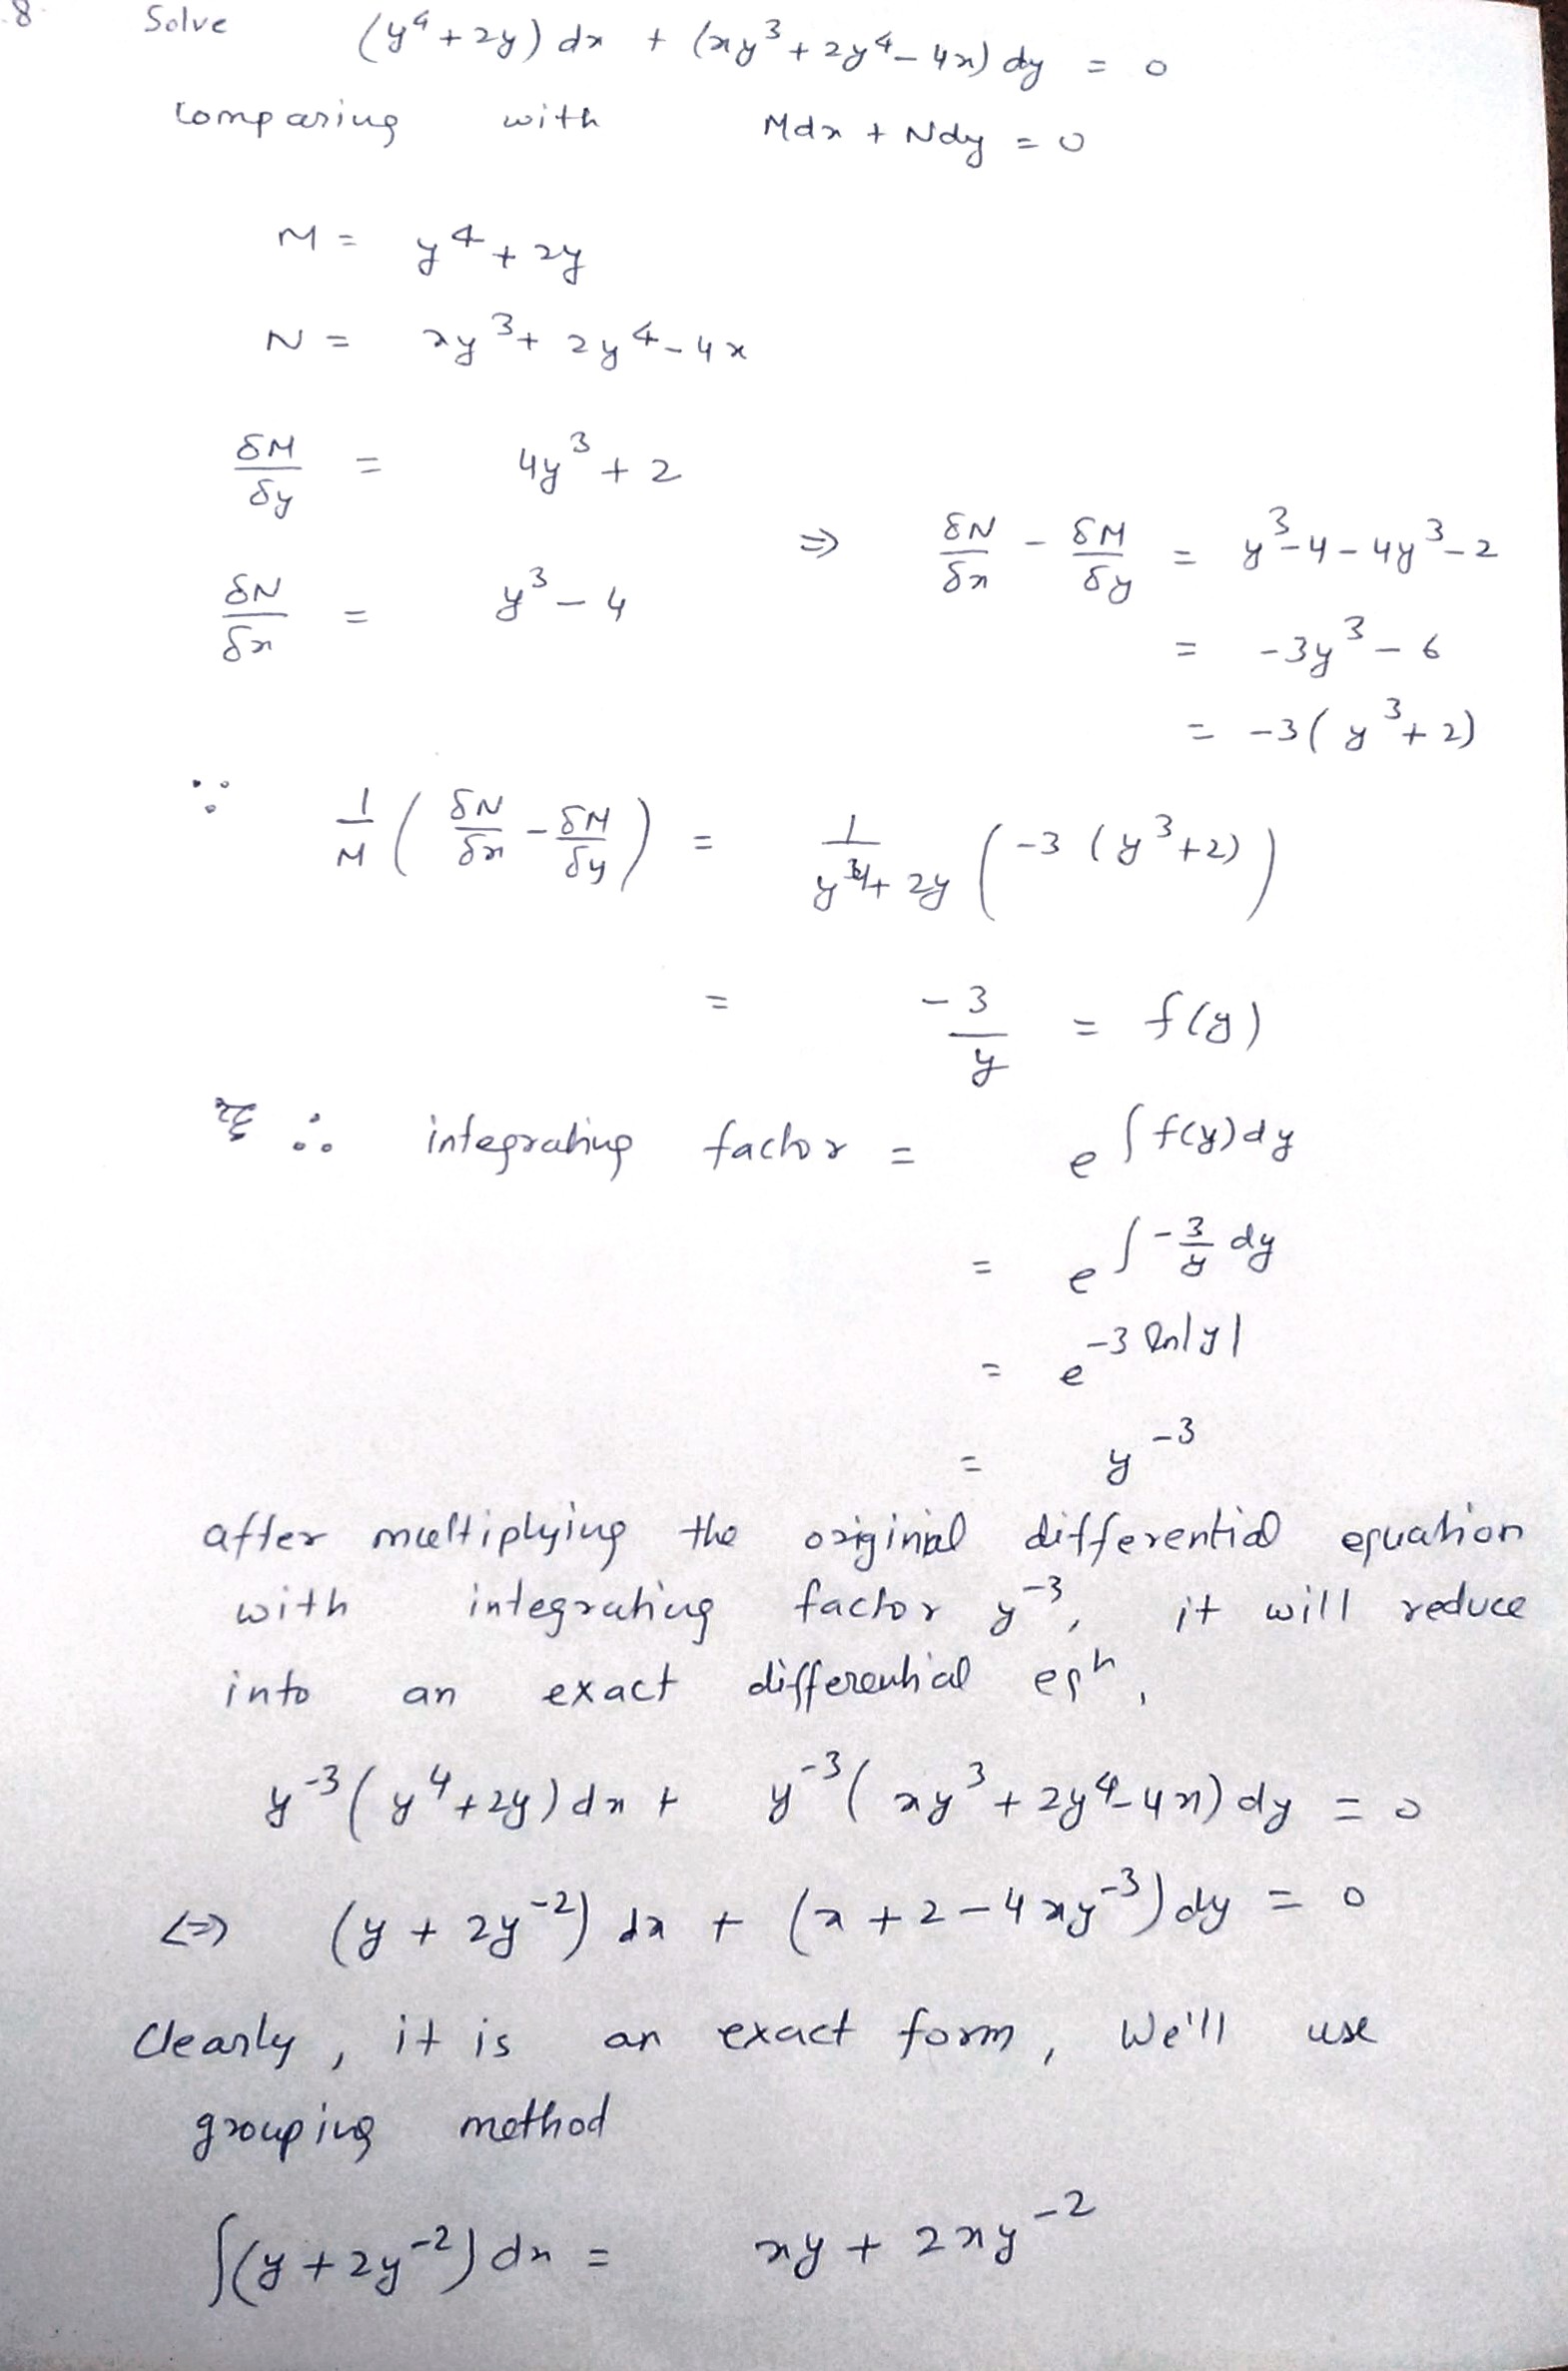 8 Solve (y⁴ + 2y) dx + (xy³ + 2y⁴ - 4x) dy = 0
Comparing with Mdx + Ndy = 0
M = y⁴ + 2y
N = xy³ + 2y⁴ - 4x
δM/δy = 4y³ + 2
⇒ δN/δx - δM/δy = y³ - 4 - 4y³ - 2
δN/δx = y³ - 4
= -3y³ - 6
= -3(y³ + 2)
∵ 1/M (δN/δx - δM/δy) = 1/(y⁴ + 2y) (-3 (y³ + 2))
= -3/y = f(y)
∴ integrating factor = e^∫f(y)dy
= e^∫-3/y dy
= e^-3 ln|y|
= y⁻³
after multiplying the original differential equation
with integrating factor y⁻³, it will reduce
into an exact differential eqⁿ,
y⁻³(y⁴ + 2y) dx + y⁻³(xy³ + 2y⁴ - 4x) dy = 0
<=> (y + 2y⁻²) dx + (x + 2 - 4xy⁻³) dy = 0
Clearly, it is an exact form, We'll use
grouping method
∫(y + 2y⁻²) dx = xy + 2xy⁻²